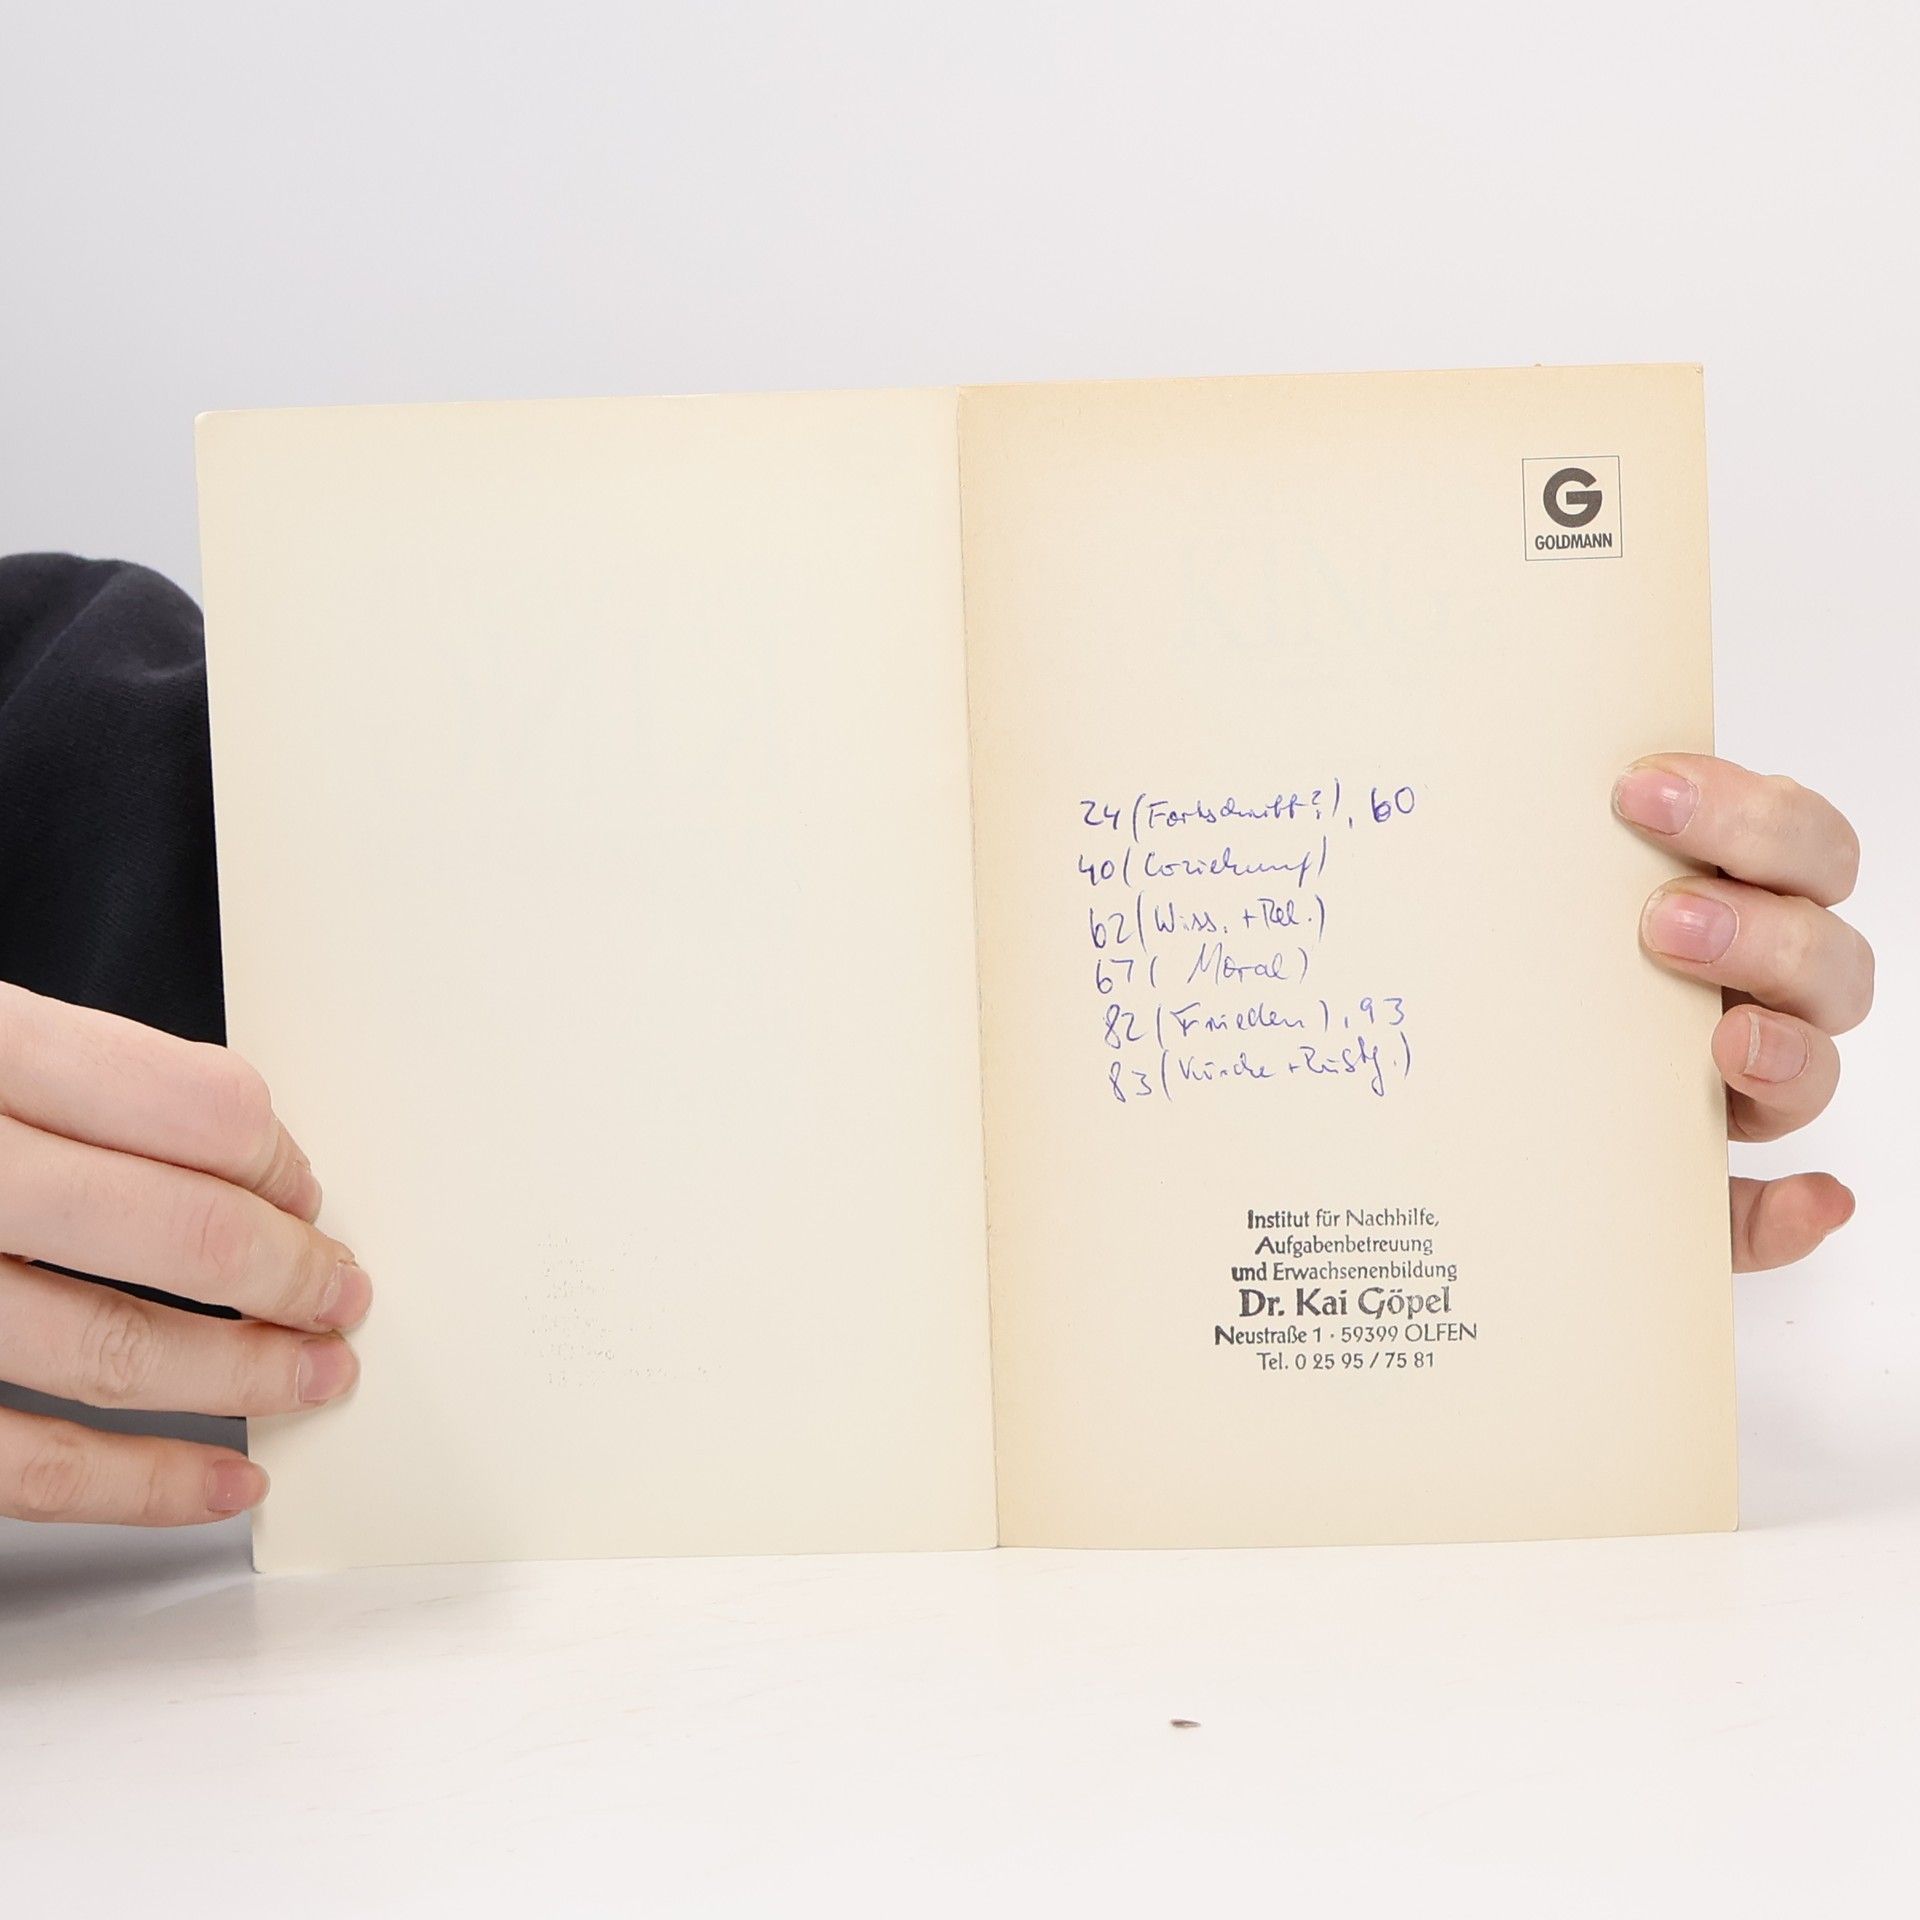 G
GOLDMANN
24 (Fortschritt?), 60
40 (Erziehung)
62 (Wiss. + Rel.)
67 ( Moral)
82 (Frieden), 93
83 (Kirche + Rüstg.)
Institut für Nachhilfe,
Aufgabenbetreuung
und Erwachsenenbildung
Dr. Kai Göpel
Neustraße 1 · 59399 OLFEN
Tel. 0 25 95 / 75 81